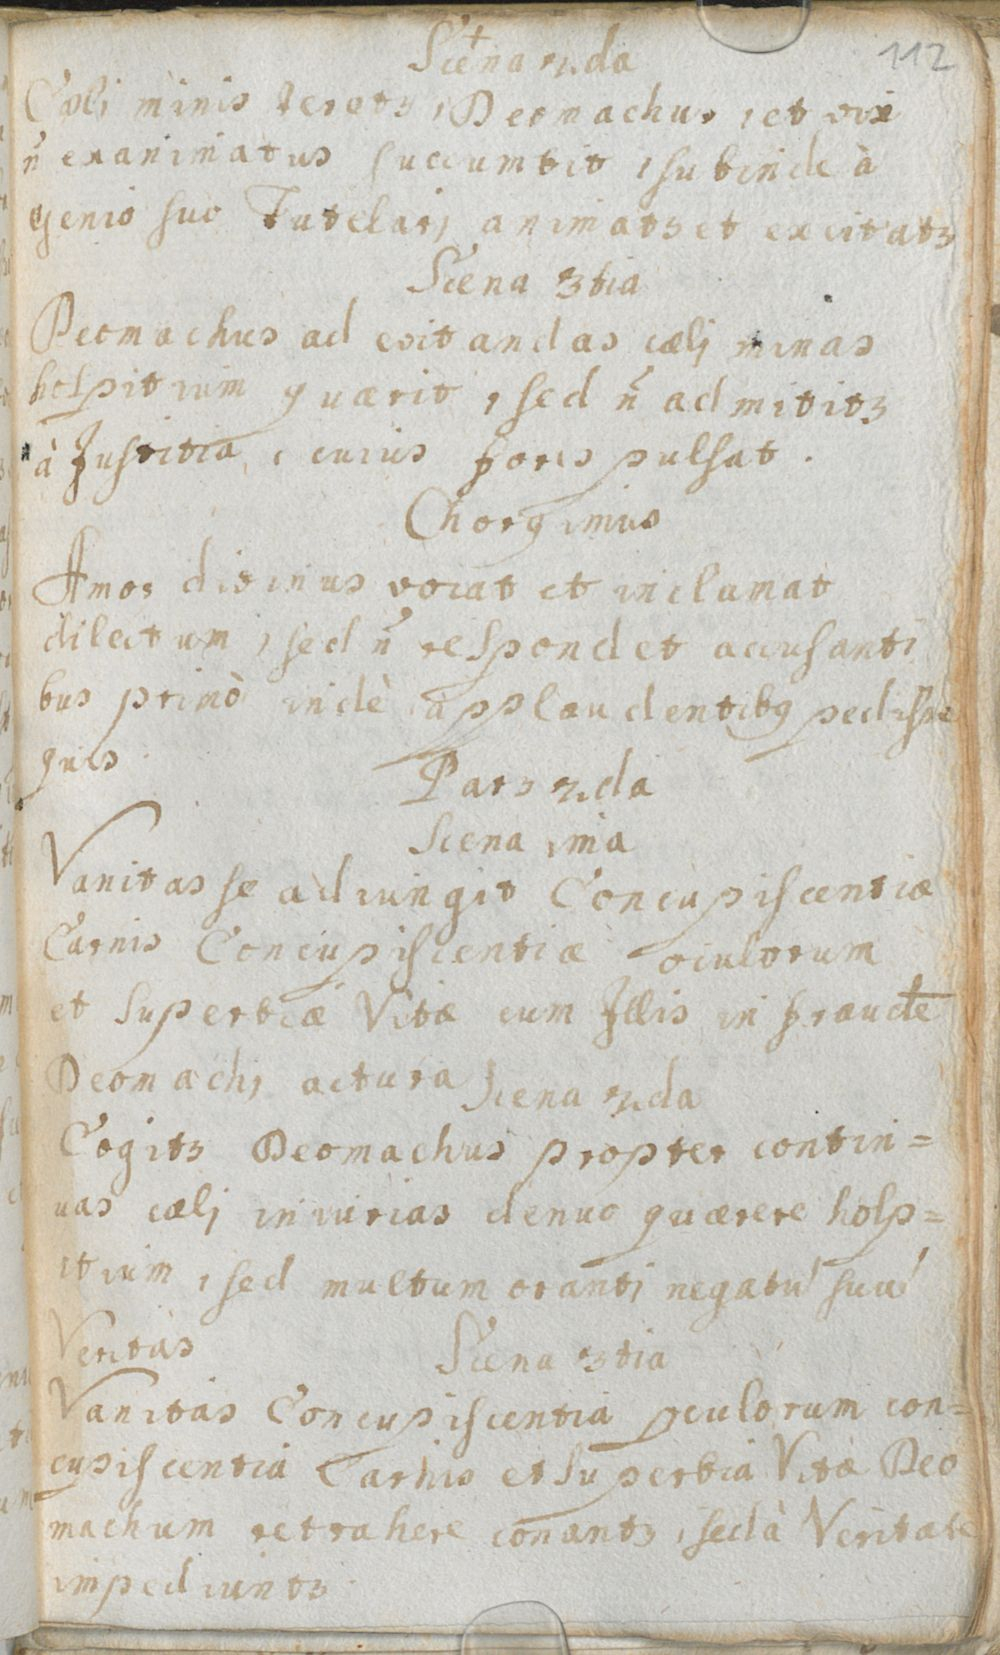 Scena 2da
112
Cœli minis teretʒ, Deomachus, et vix
n̄ exanimatus succumbit, subinde à
Genio suo Tutelari animatʒ et excitatʒ
Scena 3tia
Deomachus ad evitandas cœli minas
hospitium quærit, sed n̄ admititʒ
à Justitia, cuius fores pulsat.
Chorg imus
Amor divinus vocat et inclamat
dilectum, sed n̄ respondet accusanti
bus primò indè applaudentibg pedisse
quis
Pars 2da
Scena ima
Vanitas se adiungit Concupiscentiæ
Carnis Concupiscentiæ oculorum
et Superbiæ Vitæ cum Illis in fraude
Deomachi actura
Scena 2da
Cogitʒ Deomachus propter contin=
uas cœli iniurias denuo quærere hosp=
itium, sed multum oranti negatū suū
Veritas
Scena 3tia
Vanitas Concupiscentia oculorum con=
cupiscentia Carnis et Superbia Vitæ Deo
machum retrahere conantʒ, sed à Veritate
impediuntʒ